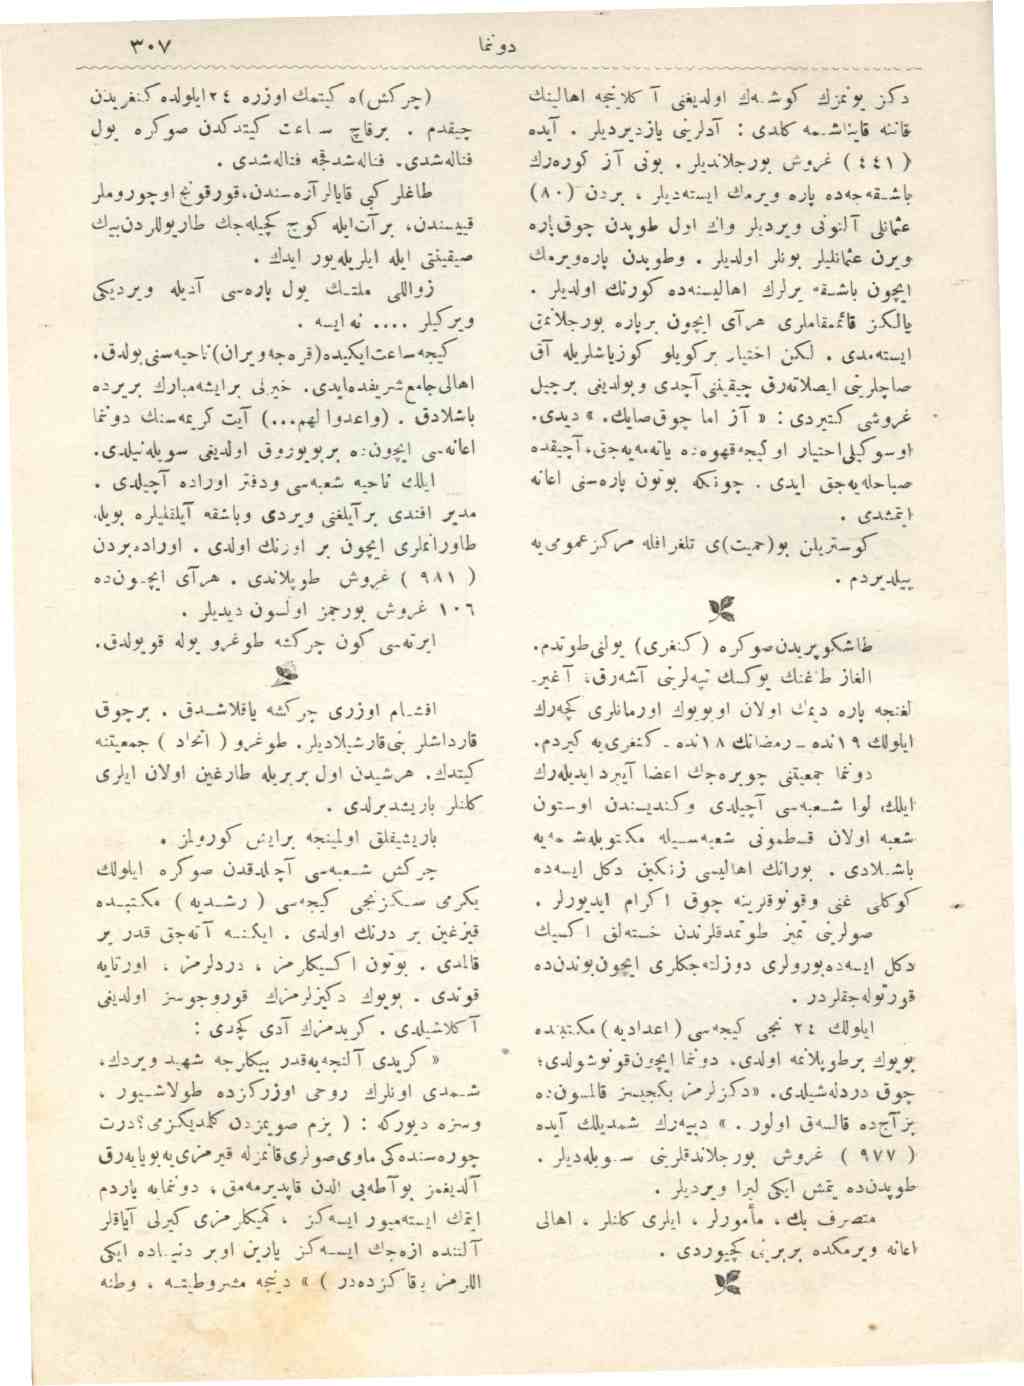 دونما
٣٠٧
دكز يونمزك كوشهك اولديغنى آكلاينجه اهالينك
قاننه قايناشمه كلدى : آدلرينى يازديرديلر . آيده
( ٤٤١ ) غروش بورجلانديلر . بونى آز كوره‌رك
باشقه‌جه‌ده پاره ويرمك ايسته‌ديلر ، بردن (٨٠)
عثمانلى آلتونى ويرديلر واك اول طوپدن چوق پاره
ويرن عثمانليلر بونلر اولديلر . وطوپدن پاره‌ويرمك
ايچون باشقه يرلرك اهاليسنه‌ده كورنك اولديلر .
يالكز قائممقاملرى هرآى ايچون برپاره بورجلانمق
ايسته‌مدى . لكن اختيار بركويلو كوزياشلريله آق
صاچلرينى ايصلاته‌رق چيقينى آچدى وبولديغى برچيل
غروشى كتيردى : « آز اما چوق صايك. » ديدى.
اوسوكيلى احتيار اوكيجه قهوه‌ده ياته‌مه‌يه‌جق، آچيقده
صباحله‌يه‌جق ايدى . چونكه بوتون پاره‌سنى اعانه
ايتمشدى .
كوستريلن بو(حميت)ى تلغرافله مركز عمومى‌يه
بيلديردم .
طاشكوپريدن صوكره (كنغرى) يولنى طوتدم.
الغاز طاغنك يوكسك تپه‌لرينى آشه‌رق، آغير-
لغنجه پاره ديمك اولان اوبويوك اورمانلرى كچه‌رك
ايلولك ١٩نده - رمضانك ١٨نده - كنغرى‌يه كيردم.
دونما جمعيتنى چويره‌جك اعضا آييرد ايديله‌رك
ايلك، لوا شعبه‌سى آچيلدى وكنديسندن اوستون
شعبه اولان قسطمونى شعبه‌سيله مكتوبله‌شمه‌يه
باشلادى . بورانك اهاليسى زنكين دكل ايسه‌ده
كوكلى غنى وقونوقلرينه چوق اكرام ايديورلر .
صولرينى تميز طوتمدقلرندن خسته‌لق اكسيك
دكل ايسه‌ده‌بورولرى دوزلته‌جكلرى ايچون‌بوندن‌ده
قورتوله‌جقلردر .
ايلولك ٢٤ نجى كيجه‌سى (اعداديه) مكتبنده
بويوك برطوپلانمه اولدى، دونما ايچون‌قونوشولدى؛
چوق دردله‌شيلدى. «دكزلرمز بكجيسز قالمسون‌ده
بز آج‌ده قالسه‌ق اولور . » دييه‌رك شمديلك آيده
( ٩٧٧ ) غروش بورجلاندقلرينى سويله‌ديلر .
طوپدن‌ده يتمش ايكى ليرا ويرديلر .
متصرف بك ، مأمورلر ، ايلرى كلنلر ، اهالى
اعانه ويرمكده بربرينى كچيوردى .
(چركش)ه كيتمك اوزره ٢٤ايلولده‌كنغريدن
چيقدم . برقاچ ساعت كيتدكدن صوكره يول
فناله‌شدى. فناله‌شدقجه فناله‌شدى .
طاغلر كبى قايالر آره‌سندن، قورقونج اوچوروملر
قييسندن، برآت‌ايله كوج كچيله‌جك طاريوللردن‌بيك
صيقينتى ايله ايلريله‌يور ايدك .
زواللى ملتك يول پاره‌سى آديله ويرديكى
ويركيلر .... نه ايسه .
كيجه‌ساعت‌ايكيده(قره‌جه‌ويران)ناحيه‌سنى‌بولدق.
اهالى‌جامع‌شريفده‌ايدى. خيرلى برايشه‌مبارك بريرده
باشلادق . (واعدوا لهم...) آيت كريمه‌سنك دونما
اعانه‌سى ايچون‌ده بربويوروق اولديغى سويله‌نيلدى.
ايلك ناحيه شعبه‌سى ودفتر اوراده آچيلدى .
مدير افندى برآيلغنى ويردى وباشقه آيلقليلره بويله
طاورانملرى ايچون بر اورنك اولدى . اوراده‌بردن
( ٩٨١ ) غروش طوپلاندى . هرآى ايچون‌ده
١٠٦ غروش بورجمز اولسون ديديلر .
ايرته‌سى كون چركشه طوغرو يوله قويولدق.
اقشام اوزرى چركشه ياقلاشدق . برچوق
قارداشلر بنى‌قارشيلاديلر. طوغرو ( اتحاد ) جمعيتنه
كيتدك. هرشيدن اول بربريله طارغين اولان ايلرى
كلنلر باريشديرلدى .
باريشيقلق اولمينجه برايش كورولمز .
چركش شعبه‌سى آچلدقدن صوكره ايلولك
يكرمى سكزنجى كيجه‌سى ( رشديه ) مكتبنده
قيزغين بر درنك اولدى . ايكنه آته‌جق قدر ير
قالمدى . بوتون اكسيكلرمز ، دردلرمز ، اورتايه
قوندى . بويوك دكيزلرمزك قوروجوسز اولديغى
آكلاشيلدى . كريدمزك آدى كچدى :
« كريدى آلنجه‌يه‌قدر بيكلرجه شهيد ويردك،
شمدى اونلرك روحى اوزركزده طولاشيور ،
وسزه ديوركه : ( بزم صويمزدن كلمديكزمى؟درت
چوره‌سنده‌كى ماوى‌صولرى‌قانمزله قيرمزى‌يه‌بويايه‌رق
آلديغمز بوآطه‌يى الدن قاپديرمه‌مق، دونمايه ياردم
ايتمك ايسته‌ميور ايسه‌كز ، كميكلرمزى كيرلى آياقلر
آلتنده ازه‌جك ايسه‌كز يارين اوبر دنياده ايكى
اللرمز يقاكزده‌در ) » دينجه مشروطيته ، وطنه